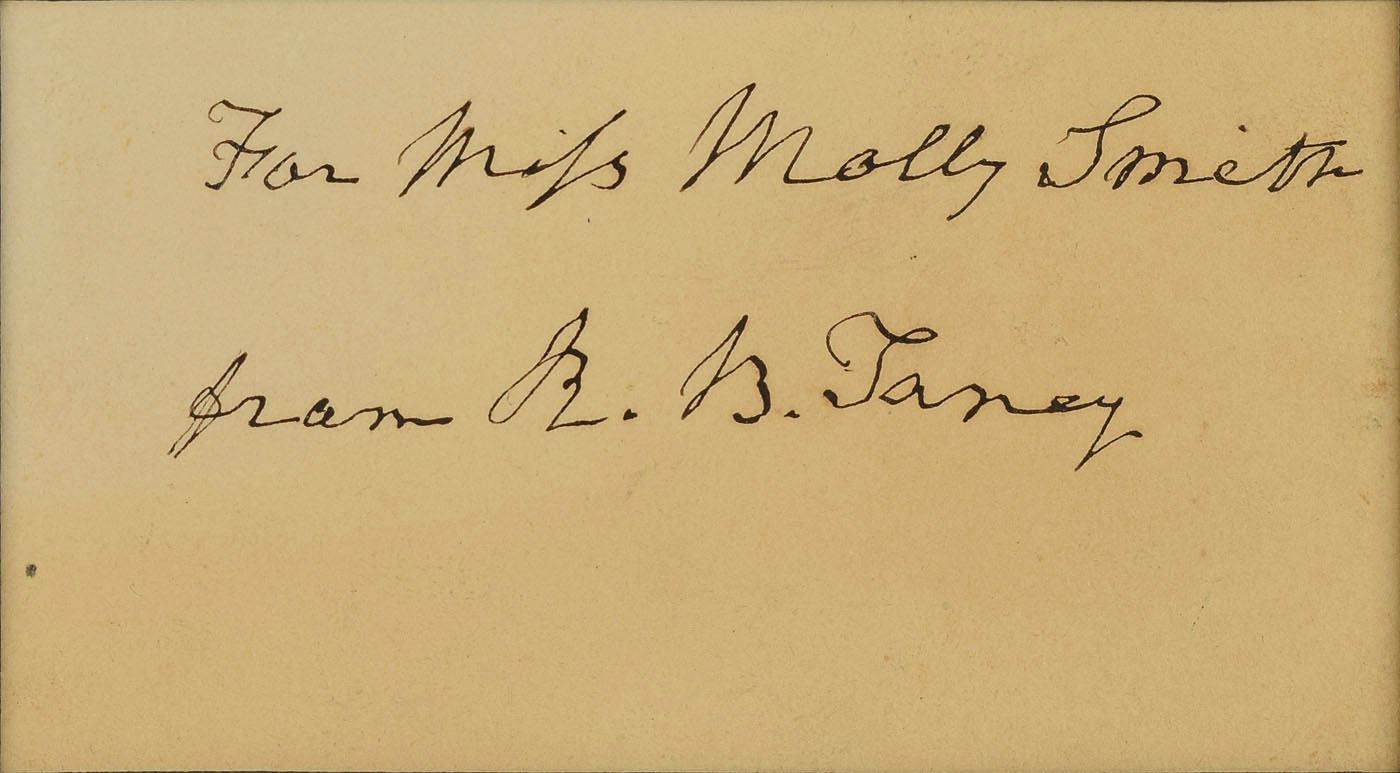 For Miſs Molly Smith
from R. B. Taney